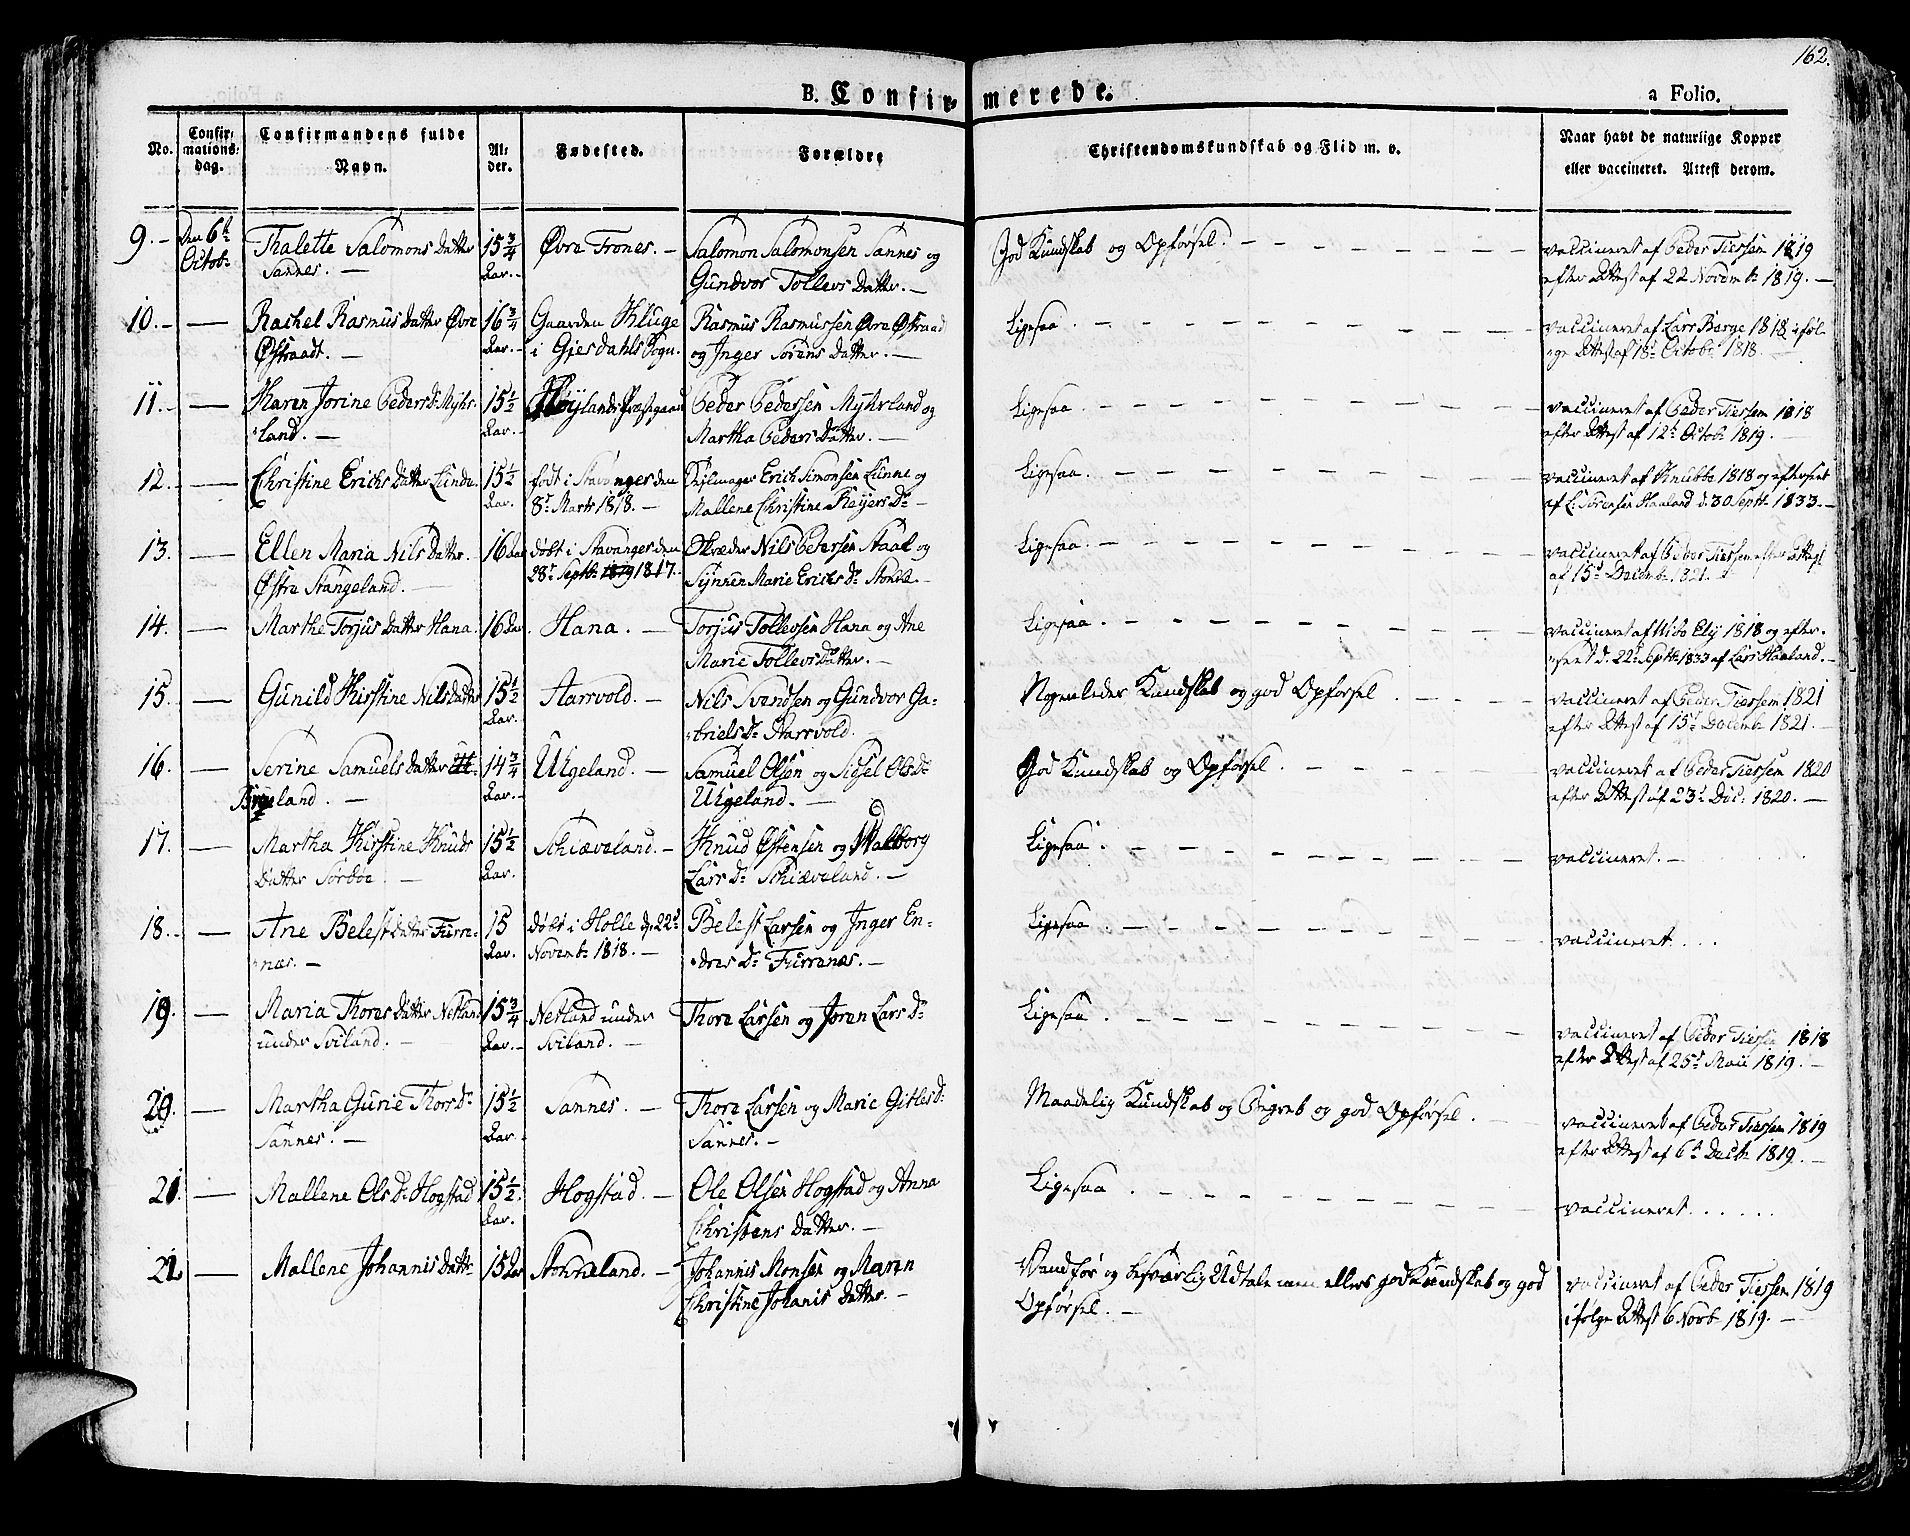 162.
B. Confir- merede. a Folio.
No. Confir- mations- dag. Confirmandens fulde Navn. Al- der. Fødested. Forældre Christendomskundskab og Flid m. v. Naar havt de naturlige Kopper eller vaccineret. Attest derom.
9. – Den 6te Thalette Salomons Datter 15 3/4 Øvre Trones. – Salomon Salomonsen Sannes og God Kundskab og Opførsel. vaccineret af Peder Tiessem 1819
Octobr Sannes. – Aar. – Gundvor Tollevs Datter. – efter Attest af 22 Novembr 1819. –
10. – — Rachel Rasmus Datter Øvre 16 3/4 Gaarden Kluge Rasmus Rasmussen Øvre Østraad Ligesaa vaccineret af Lars Berge 1818 iføl-
Østraadt. – Aar. – i Gjesdahls Sogn. og Inger Sørens Datter. – ge Attest af 18de Octobr 1818.
11. – — Karen Jorine Peders Dr Myhr- 15 1/2 Høylands Præstegaard Peder Pedersen Myhrland og Ligesaa vaccineret af Peder Tiessem 1818
land. – Aar. – Martha Peders Datter. – efter Attest af 12te Octobr 1819. –
12. — Christine Erichs Datter Lunde. 15 1/2 født i Stavanger den Erich Simonsen Lunne og Ligesaa. vaccineret af Knubbe 1818 og efterseet
Aar. 8de Marts 1818. – Mallene Christine Reyers Dr – af L. Sørensen Haaland d. 30 Septbr 1833. –
13. — Ellen Maria Nils Datter. 16 Aar døbt i Stavanger den Skræder Nils Petersen Staal og Ligesaa. vaccineret af Peder Tiessem efter Attest
Østre Stangeland. – 28de Septbr 1819 1817. Synnen Marie Erichs Dr – af 15de Decembr 1821. –
14. — Marthe Torjus Datter Hana. 16 Aar. Hana. – Torjus Tollevsen Hana og Ane Ligesaa. vaccineret af 1818 og efter-
Marie Tollevs Datter. – seet d. 22de Septbr 1833 af Lars Haaland. –
15. — Gunild Kirstine Nils Datter 15 1/2 Aarrvold. – Nils Svendsen og Gundvor Ga- Nogenledes Kundskab og god Opførsel vaccineret af Peder Tiessem 1821
Aar. briels Dr Aarrvold. efter Attest af 15de Decembr 1821. –
16. — Serine Samuels Datter 14 3/4 Uigeland. – Samuel Olsen og Sissel Ols Dr God Kundskab og Opførsel. vaccineret af Peder Tiessem 1820
Aar. – Uigeland. – efter Attest af 23de Dec: 1820. –
17. — Martha Kirstine Knuds 15 1/2 Schiæveland. – Knud Østensen og Walborg Ligesaa vaccineret. –
Datter Sørdøe. – Aar. Lars Dr Schiæveland. –
18. – — Ane Belest Datter Furre- 15 døbt i Holle d. 22de Belest Larsen og Inger En- Ligesaa vaccineret . . .
næs. – Aar. Novembr 1818. – dres Dr Furrenæs. –
19. — Maria Thores Datter Netland 15 3/4 Netland under Thore Larsen og Joren Lars Dr Ligesaa vaccineret af Peder Tiessem 1818
under Sviland. – Aar. – Sviland. – efter Attest af 25de Maii 1819. –
20. — Martha Gurie Thors Dr 15 1/2 Sannes. – Thore Larsen og Marie Gitles Dr Maadelig Kundskab og Begreb og god Opførsel. vaccineret af Peder Tiessem 1819
Sannes. – Aar. – Sannes. – efter Attest af 6te Decbr 1819. –
21. — Mallene Ols Dr Hogstad 15 1/2 Hogstad. – Ole Olsen Hogstad og Anna Ligesaa vaccineret . . . . . .
Aar. Christens Datter. –
21 — Mallene Johannis Datter 15 Aar Johannis Monsen og Maren Vandfør og besværlig Udtale men ellers god Kundskab og god vaccineret af Peder Tiessem 1819
Christine Johanis Datter. – Opførsel. – ifølge Attest 6 Novb 1819. –